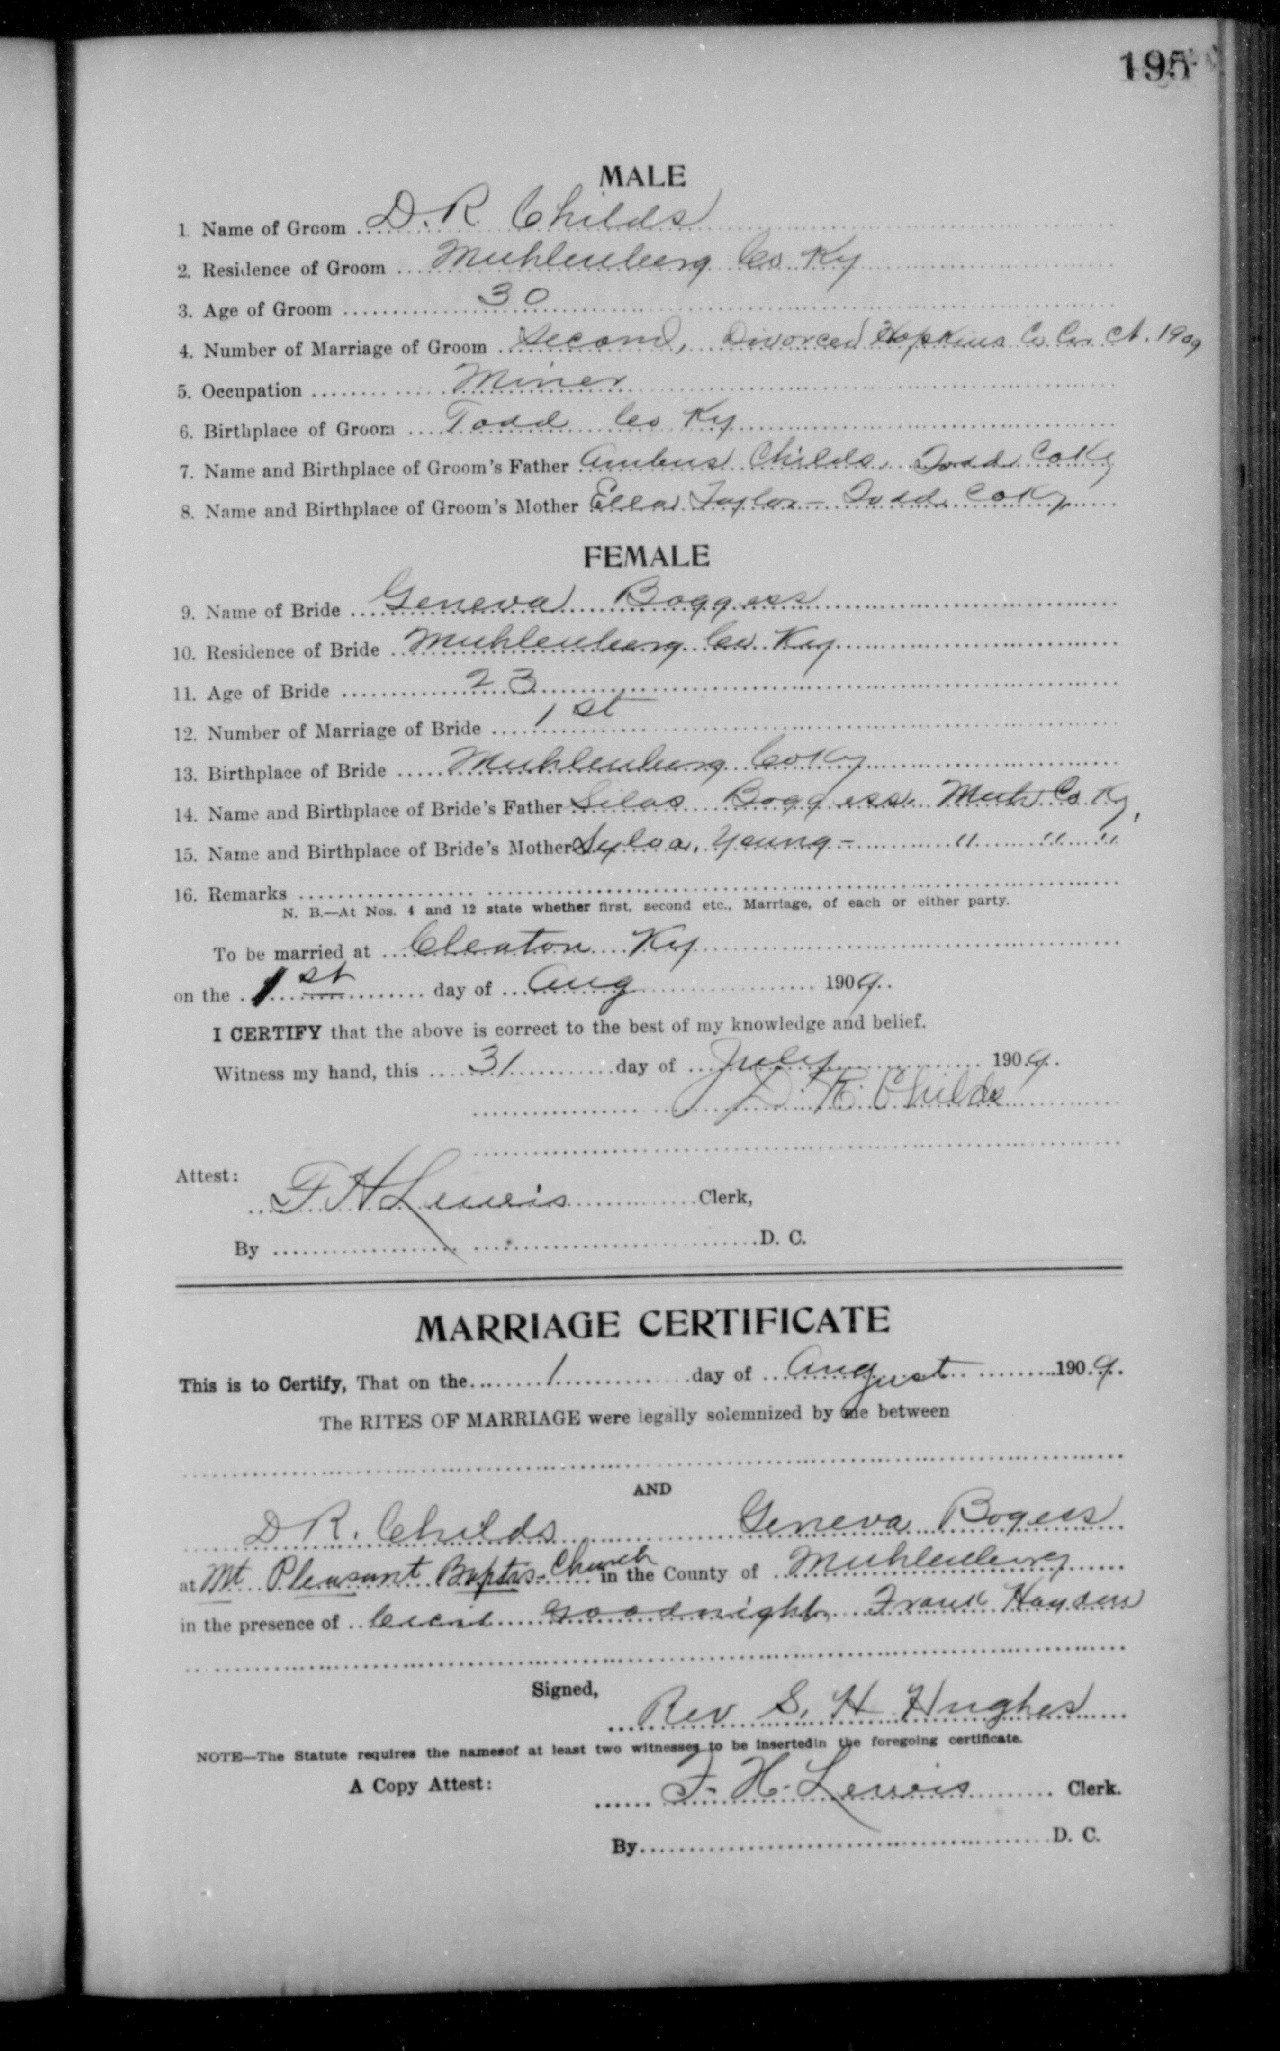 195
MALE
1. Name of Groom D. R. Childs
2. Residence of Groom Muhlenberg Co Ky
3. Age of Groom 30
4. Number of Marriage of Groom Second, Divorced Hopkins Co Cir Ct. 1909
5. Occupation Miner
6. Birthplace of Groom Todd Co Ky
7. Name and Birthplace of Groom's Father Childs, Todd Co Ky
8. Name and Birthplace of Groom's Mother Ella Taylor - Todd Co Ky
FEMALE
9. Name of Bride Geneva Boggess
10. Residence of Bride Muhlenberg Co. Ky
11. Age of Bride 23
12. Number of Marriage of Bride 1st
13. Birthplace of Bride Muhlenberg Co Ky
14. Name and Birthplace of Bride's Father Silas Boggess. Muh Co Ky,
15. Name and Birthplace of Bride's Mother Sylva, Young - " " "
16. Remarks
N. B.—At Nos. 4 and 12 state whether first, second etc., Marriage, of each or either party.
To be married at Cleaton Ky
on the 1st day of Aug 1909.
I CERTIFY that the above is correct to the best of my knowledge and belief.
Witness my hand, this 31 day of July 1909.
D. R. Childs
Attest:
F H Lewis Clerk,
By D. C.
MARRIAGE CERTIFICATE
This is to Certify, That on the 1 day of August 1909.
The RITES OF MARRIAGE were legally solemnized by me between
AND
D R. Childs Geneva Bogess
at Mt Pleasant Baptis- Church in the County of Muhlenberg
in the presence of Goodnight Frank Hayden
Signed,
Rev S. H Hughes
NOTE—The Statute requires the namesof at least two witnesses to be insertedin the foregoing certificate.
A Copy Attest:
F. H. Lewis Clerk.
By D. C.